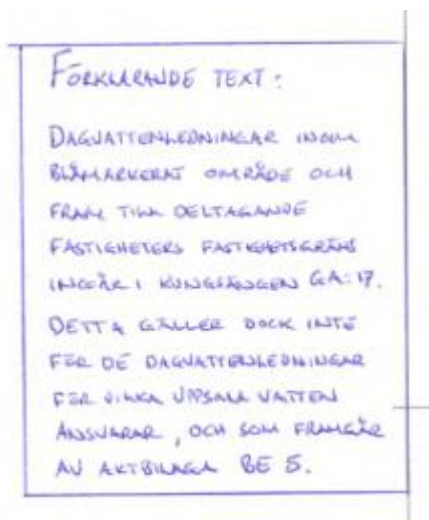 FÖRKLARANDE TEXT:
DAGVATTENLEDNINGAR INOM
BLÅMARKERAT OMRÅDE OCH
FRAM TILL DELTAGANDE
FASTIGHETERS FASTIGHETSGRÄNS
INGÅR I KUNGSÄNGEN GA:17.
DETTA GÄLLER DOCK INTE
FÖR DE DAGVATTENLEDNINGAR
FÖR VILKA UPPSALA VATTEN
ANSVARAR, OCH SOM FRAMGÅR
AV AKTBILAGA BE 5.